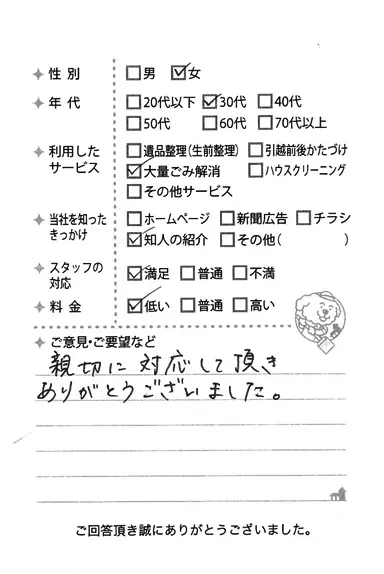 ✦ 性 別 □男 ☑女
✦ 年 代 □20代以下 ☑30代 □40代
□50代 □60代 □70代以上
✦ 利用した □遺品整理(生前整理) □引越前後かたづけ
サービス ☑大量ごみ解消 □ハウスクリーニング
□その他サービス
✦ 当社を知った □ホームページ □新聞広告 □チラシ
きっかけ ☑知人の紹介 □その他( )
✦ スタッフの
対応 ☑満足 □普通 □不満
✦ 料 金 ☑低い □普通 □高い
✦ ご意見・ご要望など
親切に対応して頂き
ありがとうございました。
ご回答頂き誠にありがとうございました。